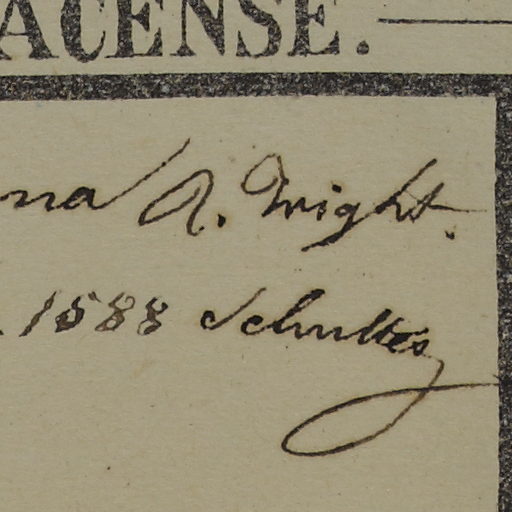 ACENSE.
na R. Wight.
1588 Schultes